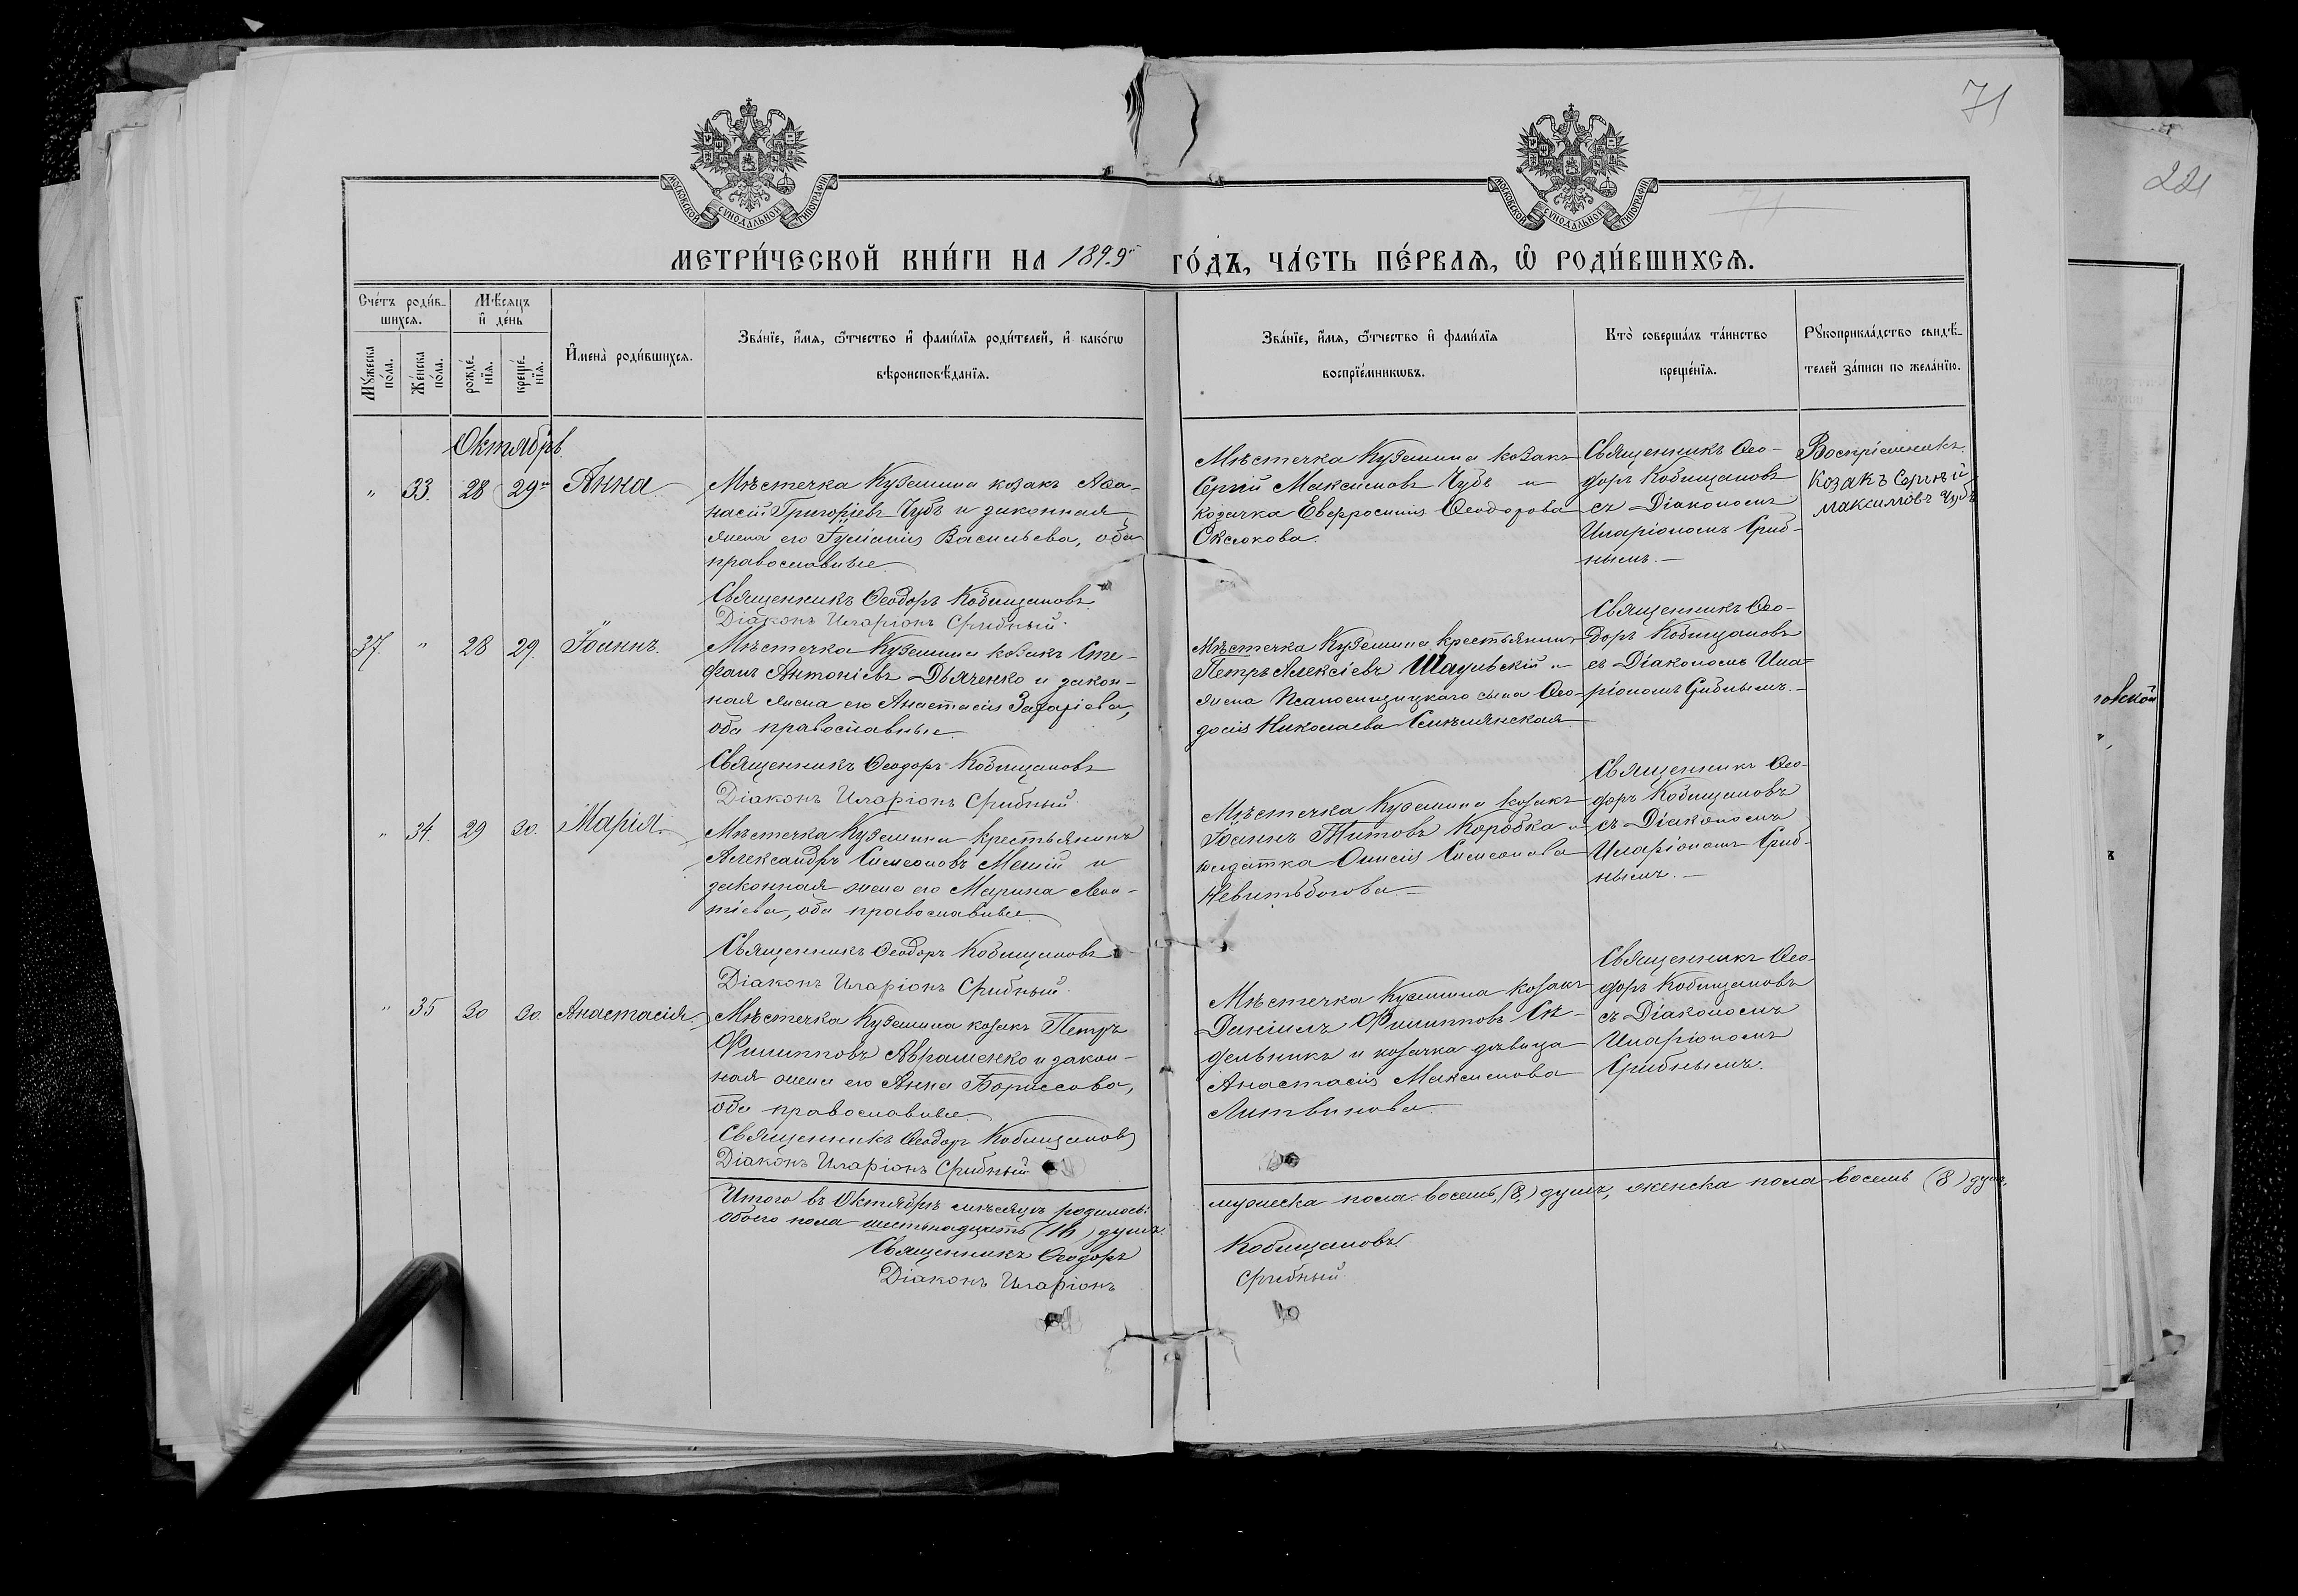 71
221
МОСКОВСКОЙ СѴНОДАЛЬНОЙ ТИПОГРАФІИ
МОСКОВСКОЙ СѴНОДАЛЬНОЙ ТИПОГРАФІИ
71
МЕТРИ́ЧЕСКОЙ КНИ́ГИ НА 1895 ГО́ДЪ, ЧА́СТЬ ПЕ́РВАѦ, Ѽ РОДИ́ВШИХСѦ.
Сче́тъ роди́в-
шихсѧ.
Мꙋжеска
по́ла.
Же́нска
по́ла.
Мѣ́сѧцъ
и҆ де́нь
рожде́-
нїѧ.
креще́-
нїѧ.
И҆мена̀ роди́вшихсѧ.
Зва́нїе, и҆́мѧ, ѻ҆́тчество и҆ фами́лїѧ роди́телей, и҆ како́гѡ
вѣроисповѣ́данїѧ.
Зва́нїе, и҆́мѧ, ѻ҆́тчество и҆ фами́лїѧ
воспрїе́мникѡвъ.
Кто̀ соверша́лъ та́инство
креще́нїѧ.
Рꙋкоприкла́дство свидѣ́-
телей за́писи по жела́нїю.
Октябрь
" 33. 28 29 Анна
Мѣстечка Куземина козакъ Аѳа-
насій Григоріевъ Чубъ и законная
жена его Іуліанія Васильева, оба
православные
Священникъ Ѳеодоръ Кобищановъ
Діаконъ Иларіонъ Срибный.
Мѣстечка Куземина козакъ
Сергій Максимовъ Чубъ и
козачка Евфросинія Ѳеодорова
Оксюкова.
Священникъ Ѳео-
доръ Кобищановъ
съ Діакономъ
Иларіономъ Сриб-
нымъ.—
Воспріемникъ
козакъ Сергѣй
Максимовъ Чубъ
37. " 28 29. Іоаннъ.
Мѣстечка Куземина козакъ Сте-
фанъ Антоніевъ Дьяченко и закон-
ная жена его Анастасія Захаріева,
оба православные
Священникъ Ѳеодоръ Кобищановъ
Діаконъ Иларіонъ Срибный
Мѣстечка Куземина крестьянинъ
Петръ Алексіевъ Шаульскій и
жена Ѳео-
досія Николаева
Священникъ Ѳео-
доръ Кобищановъ
съ Діакономъ Ила-
ріономъ Срибнымъ.—
" 34. 29 30. Марія.
Мѣстечка Куземина крестьянинъ
Александръ Симеоновъ и
законная жена его Марина Леон-
тіева, оба православные
Священникъ Ѳеодоръ Кобищановъ
Діаконъ Иларіонъ Срибный.
Мѣстечка Куземина козакъ
Іоаннъ Титовъ Коробка и
солдатка Симеонова
Священникъ Ѳео-
доръ Кобищановъ
съ Діакономъ
Иларіономъ Сриб-
нымъ.—
" 35 30 30. Анастасія
Мѣстечка Куземина козакъ Петръ
Филипповъ Авраменко и закон-
ная жена его Анна Борисова,
оба православные
Священникъ Ѳеодоръ Кобищановъ
Діаконъ Иларіонъ Срибный
Мѣстечка Куземина козакъ
Даніилъ Филипповъ Сѣ-
дельникъ и козачка дѣвица
Анастасія Максимова
Литвинова
Священникъ Ѳео-
доръ Кобищановъ
съ Діакономъ
Иларіономъ
Срибнымъ.
Итого въ Октябрѣ мѣсяцѣ родилось: мужеска пола восемь (8) душъ, женска пола восемь (8) душъ,
обоего пола шестьнадцать (16) душъ.
Священникъ Ѳеодоръ Кобищановъ
Діаконъ Иларіонъ Срибный